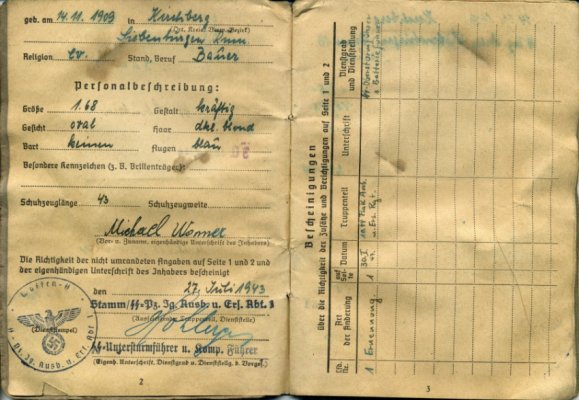 geb. am 14.11.1909 in Kirchberg
(Ort, Kreis, Verw.-Bezirk)
Siebenbürgen Rum.
Religion ev. Stand, Beruf Bauer
Personalbeschreibung:
Größe 1.68 Gestalt kräftig
Gesicht oval Haar dkl. blond
Bart keinen Augen blau
Besondere Kennzeichen (z. B. Brillenträger):
Schuhzeuglänge 43 Schuhzeugweite
Michael Werner
(Vor- u. Zuname, eigenhändige Unterschrift des Inhabers)
Die Richtigkeit der nicht umrandeten Angaben auf Seite 1 und 2 und
der eigenhändigen Unterschrift des Inhabers bescheinigt
den 27. Juli 1943
Stamm/SS-Pz. Jg. Ausb. u. Ers. Abt. 1
(Ausfertigender Truppenteil, Dienststelle)
(Dienststempel)
SS-Untersturmführer u. Komp. Führer
(Eigenh. Unterschrift, Dienstgrad u. Dienststellg. d. Vorges.)
Waffen-SS
SS-Pz. Jg. Ausb. u. Ers. Abt. 1
2
Bescheinigungen
über die Richtigkeit der Zusätze und Berichtigungen auf Seite 1 und 2
Lfd. Nr.
Art der Änderung
auf Seite
Datum
Truppenteil
Unterschrift
Dienstgrad und Dienststellung
1 Ernennung. 1
3